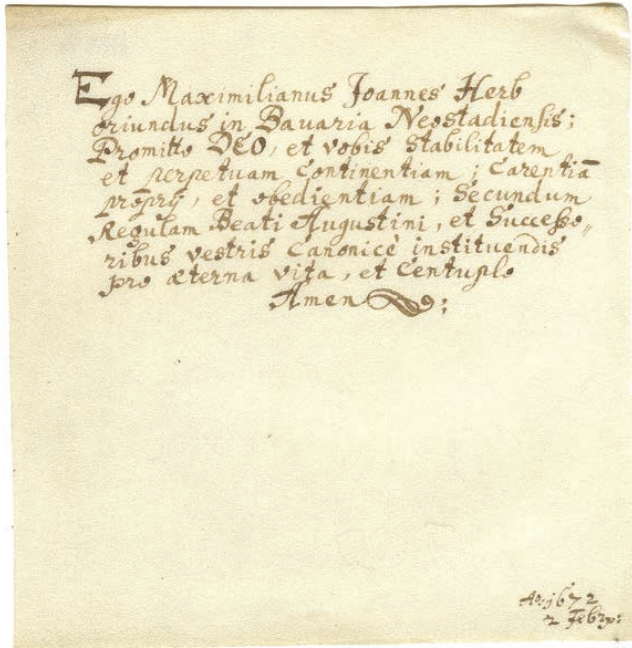 Ego Maximilianus Joannes Herb
oriundus in Bavaria Neostadiensis;
Promitto DEO, et vobis Stabilitatem
et perpetuam Continentiam; Carentiā
proprij, et obedientiam; Secundum
Regulam Beati Augustini, et Successo„
ribus vestris Canonicè instituendis
pro æterna vita, et Centuplo
Amen;
Ao: 1672
2 Febr: